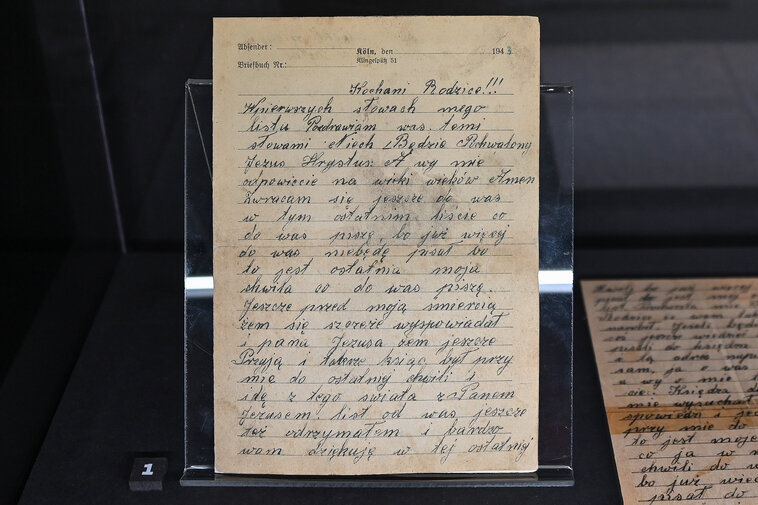 Absender:
Köln, den 1943
Briefbuch Nr.:
Klingelpütz 51
Kochani Rodzice!!!
Wpierwszych słowach mego
listu Pozdrawiam was temi
słowami Niech Będzie Pochwalony
Jezus Hrystus A wy mie
odpowiecie na wieki wieków Amen
Zwracam się jeszcze do was
w tym ostatnim liście co
do was piszę, bo już więcej
do was niebędę pisał bo
to jest ostatnia moja
chwila co do was piszę.
Jeszcze przed moją śmiercią
żem się szczeże wyspowiadał
i pana Jezusa żem jeszcze
Przyją i także ksiąc był przy
mie do ostatniy chwili i
idę z tego świata z Panem
Jezusem. list od was jeszcze
też odrzymałem i bardzo
wam dziękuję w tej ostatnij
1
bo już więcej
pisał do was
to jest moje
co ja w
chwili do
przy mie do
mie wysłuchał
spowiedzi i